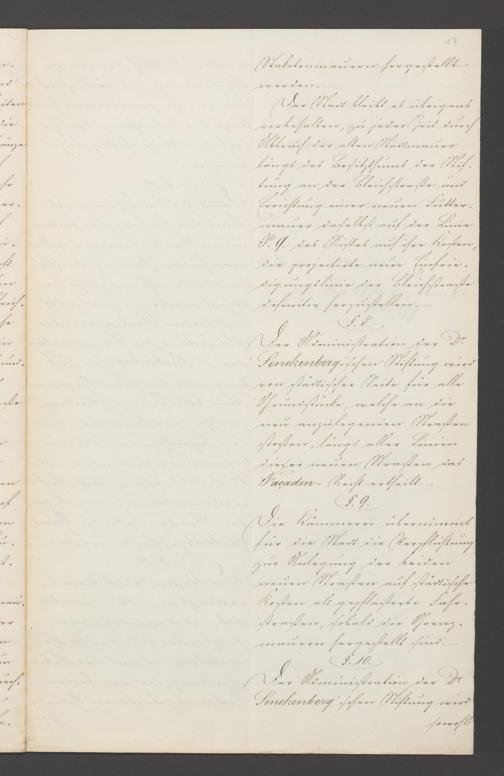 17
Staketenmauern hergestellt
werden.
Der Stadt bleibt es übrigens
vorbehalten, zu jeder Zeit durch
Abbruch der alten Stadtmauer
längs des Besitzthums der Stif-
tung an der Bleichstraße und
Errichtung einer neuen Futter-
mauer daselbst auf der Linie
P. Q. des Risses auf ihre Kosten,
die projectirte neue Einfrie-
digungslinie der Bleichstraße
definitiv herzustellen.
§. 8.
Der Administration der Dr
Senckenbergischen Stiftung wird
von städtischer Seite für alle
Grundstücke, welche an die
neu anzulegenden Straßen
stoßen, längs aller Linien
dieser neuen Straßen das
Façaden-Recht ertheilt.
§. 9.
Die Kämmerei übernimmt
für die Stadt die Verpflichtung
zur Anlegung der beiden
neuen Straßen auf städtische
Kosten als gepflasterte Fahr-
straßen, sobald die Grenz-
mauern hergestellt sind.
§. 10.
Der Administration der Dr
Senckenberg'schen Stiftung wird
sowohl